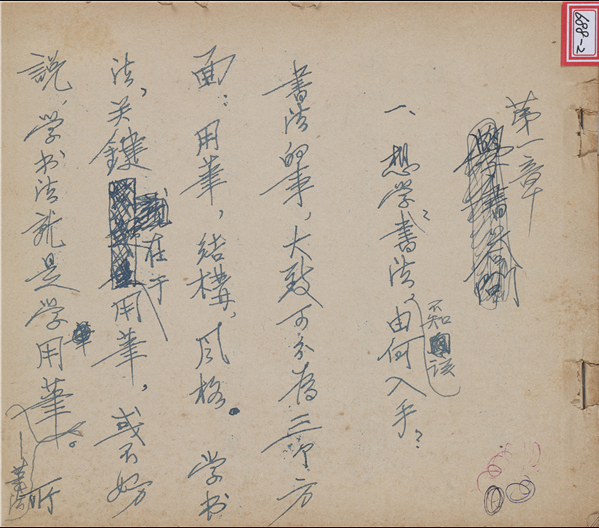 688-2
第一章
一、想学書法,由何入手?
不知该
書法的事,大致可分為三个方
面:用筆,結構,風格。学书
法,关鍵在于用筆,或不妨
説,学书法就是学用筆。所